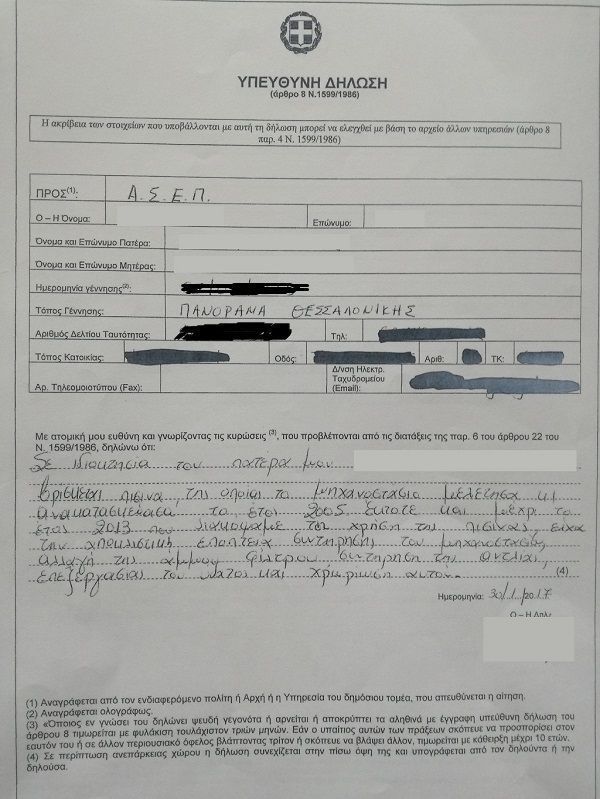 ΥΠΕΥΘΥΝΗ ΔΗΛΩΣΗ
(άρθρο 8 Ν.1599/1986)
Η ακρίβεια των στοιχείων που υποβάλλονται με αυτή τη δήλωση μπορεί να ελεγχθεί με βάση το αρχείο άλλων υπηρεσιών (άρθρο 8
παρ. 4 Ν. 1599/1986)
ΠΡΟΣ(1): Α.Σ.Ε.Π.
Ο – Η Όνομα: Επώνυμο:
Όνομα και Επώνυμο Πατέρα:
Όνομα και Επώνυμο Μητέρας:
Ημερομηνία γέννησης(2):
Τόπος Γέννησης: ΠΑΝΟΡΑΜΑ ΘΕΣΣΑΛΟΝΙΚΗΣ
Αριθμός Δελτίου Ταυτότητας: Τηλ:
Τόπος Κατοικίας: Οδός: Αριθ: ΤΚ:
Αρ. Τηλεομοιοτύπου (Fax):
Δ/νση Ηλεκτρ.
Ταχυδρομείου
(Email):
Με ατομική μου ευθύνη και γνωρίζοντας τις κυρώσεις (3), που προβλέπονται από τις διατάξεις της παρ. 6 του άρθρου 22 του
Ν. 1599/1986, δηλώνω ότι:
Σε ιδιοκτησία του πατέρα μου
βρίσκεται πισίνα, της οποίας το μηχανοστάσιο μελέτησα κι
ανακατασκεύασα το έτος 2005. Έκτοτε και μέχρι το
έτος 2013 που διακόψαμε την χρήση της πισίνας, είχα
την αποκλειστική εποπτεία συντήρησης του μηχανοστασίου,
αλλαγή της άμμου φίλτρου, συντήρηση της αντλίας,
επεξεργασίας του νερού και χλωρίωση αυτού. (4)
Ημερομηνία: 30/1/2017
Ο – Η Δηλ.
(1) Αναγράφεται από τον ενδιαφερόμενο πολίτη ή Αρχή ή η Υπηρεσία του δημόσιου τομέα, που απευθύνεται η αίτηση.
(2) Αναγράφεται ολογράφως.
(3) «Όποιος εν γνώσει του δηλώνει ψευδή γεγονότα ή αρνείται ή αποκρύπτει τα αληθινά με έγγραφη υπεύθυνη δήλωση του
άρθρου 8 τιμωρείται με φυλάκιση τουλάχιστον τριών μηνών. Εάν ο υπαίτιος αυτών των πράξεων σκόπευε να προσπορίσει στον
εαυτόν του ή σε άλλον περιουσιακό όφελος βλάπτοντας τρίτον ή σκόπευε να βλάψει άλλον, τιμωρείται με κάθειρξη μέχρι 10 ετών.
(4) Σε περίπτωση ανεπάρκειας χώρου η δήλωση συνεχίζεται στην πίσω όψη της και υπογράφεται από τον δηλούντα ή την
δηλούσα.